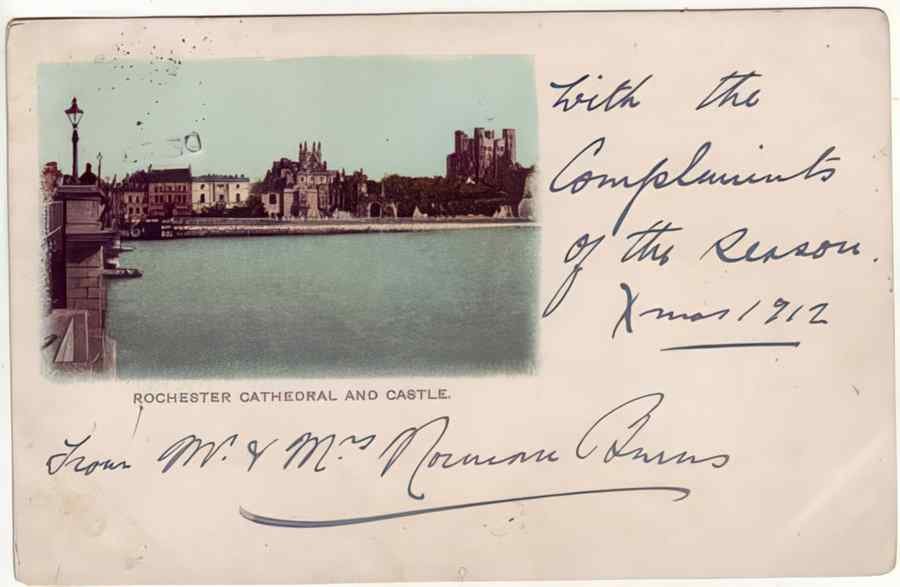 With the
Compliments
of the season.
Xmas 1912
ROCHESTER CATHEDRAL AND CASTLE.
From Mr. & Mrs Norman Burns